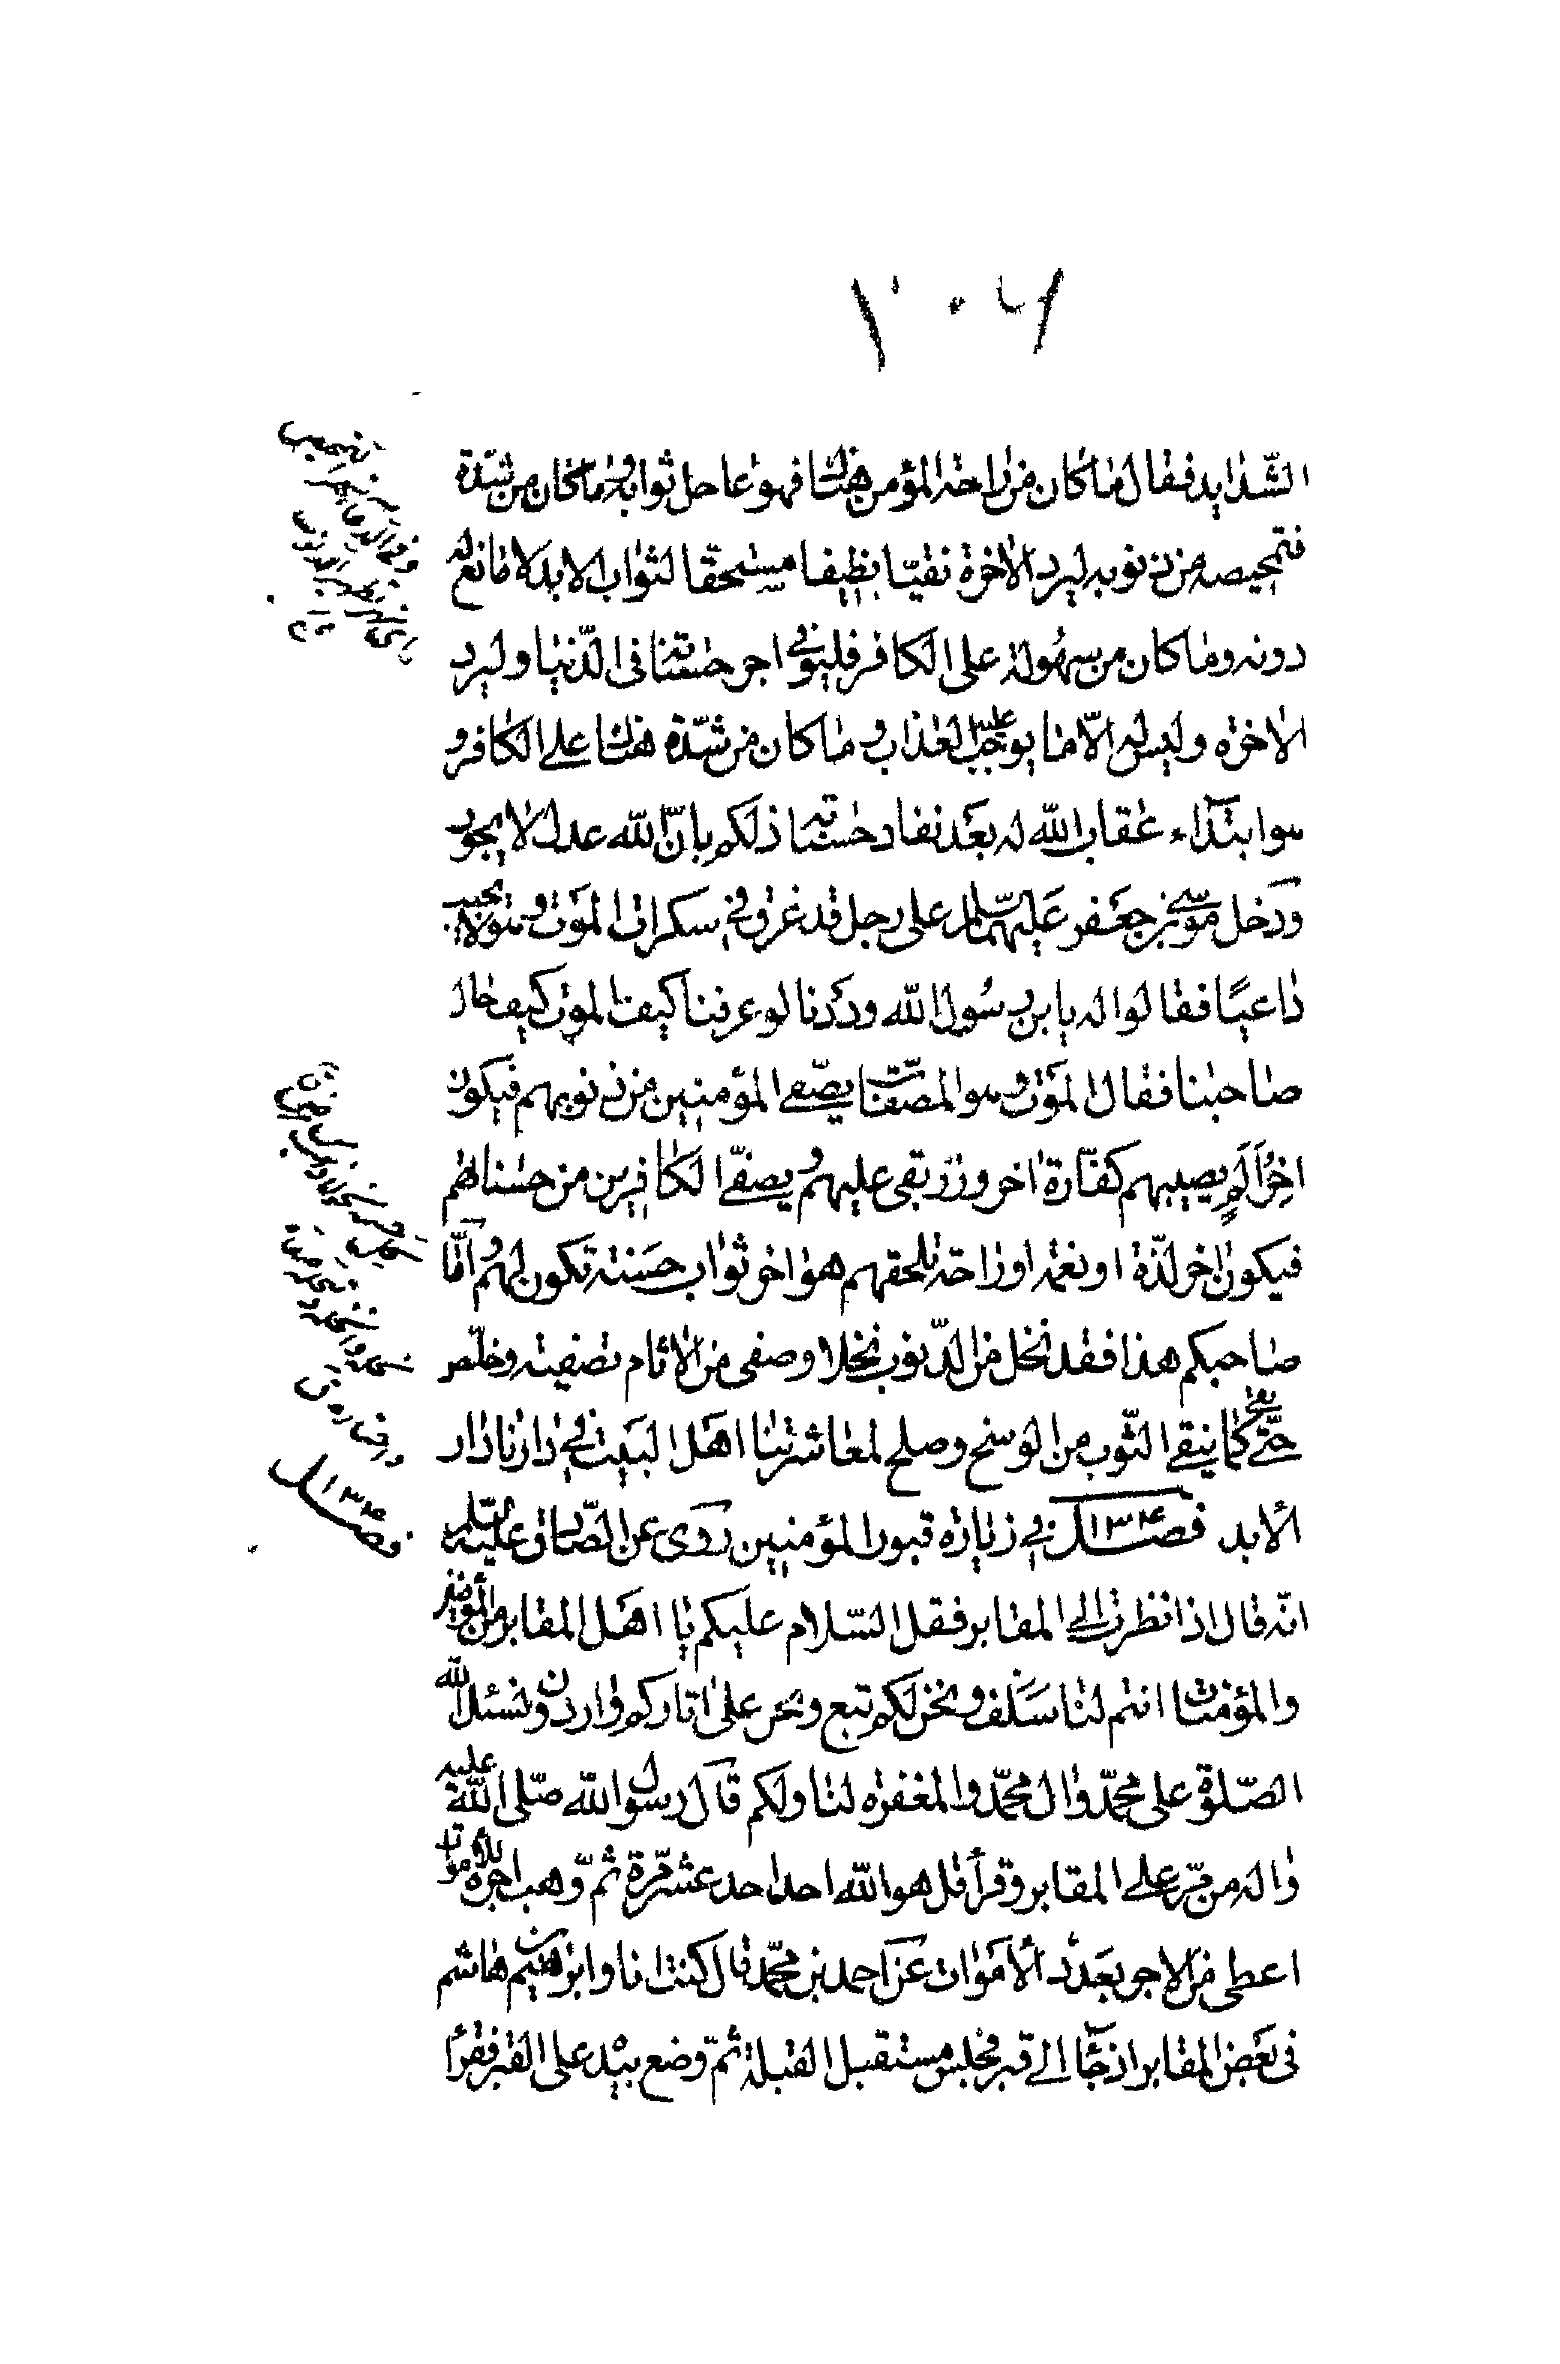 الشّدايد فقال ما كان من راحة المؤمن هناك فهو عاجل ثوابه وما كان من شدّة
فتمحيصه من ذنوبه ليرد الاخرة نقيّا نظيفا مستحقّا لثواب الابد لا مانع له
دونه وما كان من سهولة على الكافر فليوفى اجر حسناته فى الدّنيا وليرد
الاخرة وليس له الّا ما يوجب عليه العذاب وما كان من شدّة هناك على الكافر و
هو ابتداء عقاب الله له بعد نفاد حسناته ذلكم بانّ الله عدل لا يجور
ودخل موسى بن جعفر عليهما السلام على رجل قد غرق فى سكرات الموت وهو لا يجيب
داعيًا فقالوا له يابن رسول الله وددنا لو عرفنا كيف الموت كيف حال
صاحبنا فقال الموت هو المصفاة يصّفى المؤمنين من ذنوبهم فيكون
اخر الم يصيبهم كفّارة اخر وزر بقى عليهم ويصفّى الكافرين من حسناتهم
فيكون اخر لذّة او نعمة او راحة تلحقهم هو اخر ثواب حسنة تكون لهم وامّا
صاحبكم هذا فقد نخل من الذّنوب نخلا وصفى من الاثام تصفية وخلّص
حتّى نقى كما ينقى الثّوب من الوسخ وصلح لمعاشرتنا اهل البيت فى دارنا دار
الأبد فصل ١٣٤ فى زيارة قبور المؤمنين روى عن الصّادق عليه السلم
انّه قال اذا نظرت الى المقابر فقل السّلام عليكم يا اهل المقابر من المؤمنين
والمؤمنات انتم لنا سَلَف ونحن لكم تبع ونحن على اثاركم واردون ونسئل الله
الصّلوة على محمّد وال محمّد والمغفرة لنا ولكم قال رسول الله صلّى الله عليه
واله من مرّ على المقابر وقرأ قل هو الله احد احد عشر مرّة ثمّ وهب اجره للأموات
اعطى من الاجر بعدد الأموات عن احمد بن محمّد قال كنت انا وابراهيم بن هاشم
فى بعض المقابر اذ جآء الى قبر فجلس مستقبل القبلة ثمّ وضع يده على القبر فقرأ
فصل ١٣٤